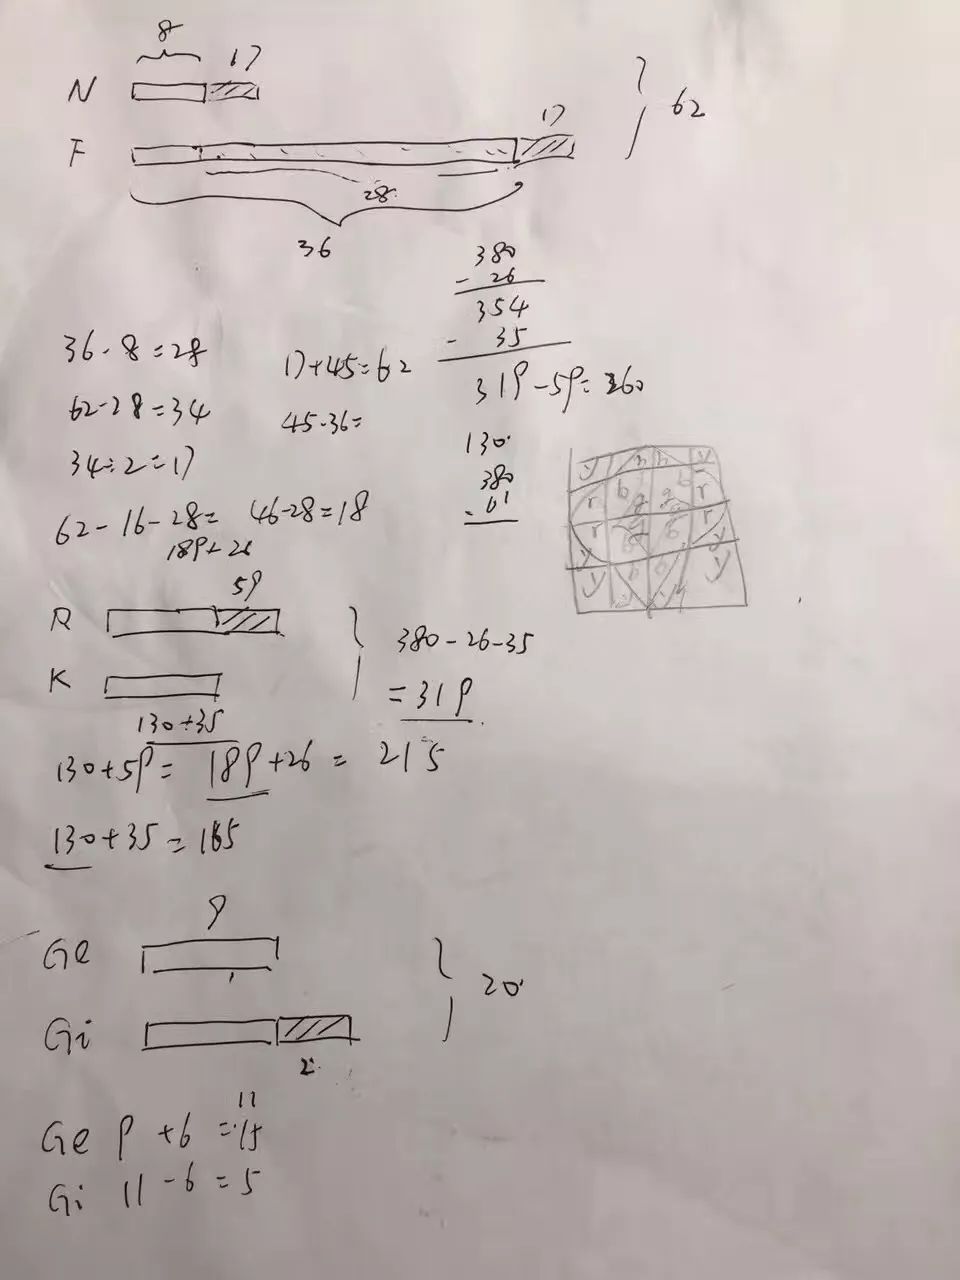 8
17
N
17
62
F
28
36
380
- 26
354
- 35
319-59=260
36-8=28
17+45=62
62-28=34
45-36=
34÷2=17
130
380
- 61
62-16-28= 46-28=18
189+26
59
R
380-26-35
K
=319
130+35
130+59= 189+26 = 215
130+35=165
9
Ge
20
Gi
2
11
Ge 9 +6 =15
Gi 11 -6 =5